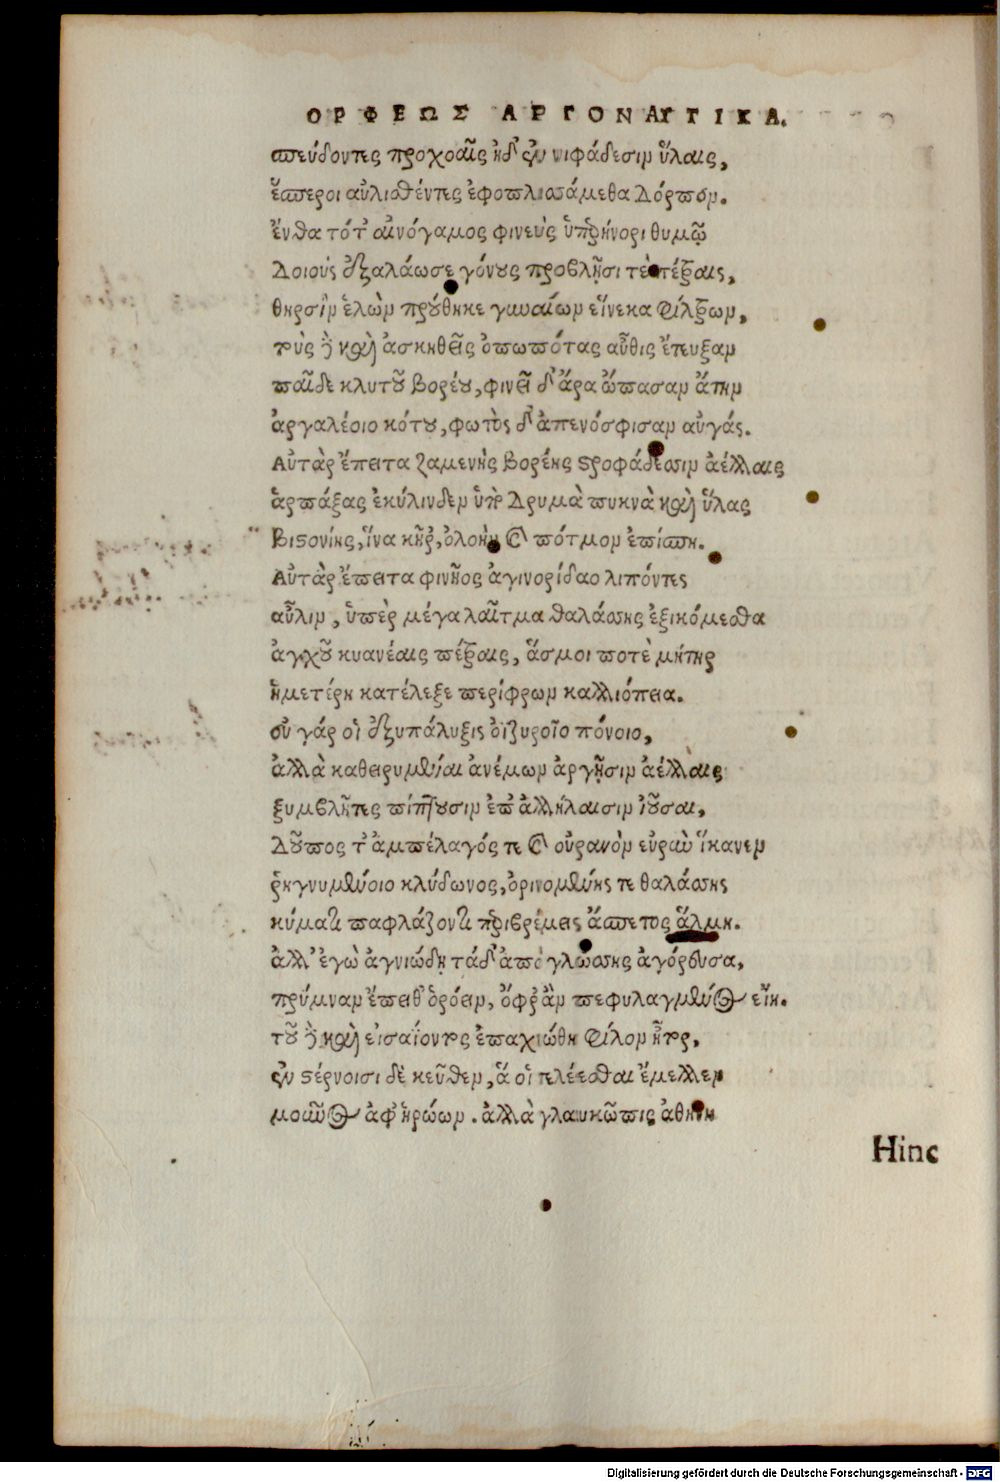 ΟΡΦΕΩΣ ΑΡΓΟΝΑΥΤΙΚΑ.
σπεύδοντες προχοαῖς ἠδ' ἐν νιφάδεσιν ὕλαις,
ἕσπεροι αὐλισθέντες ἐφοπλισσάμεθα δόρπον.
ἔνθα τότ' αἰνόγαμος φινεὺς ὑπερήνορι θυμῷ
δοιοὺς ἐξαλάωσε γόνους προβλῆσι τὲ πέτραις,
θηρσὶν ἑλὼρ προύθηκε γυναίων εἵνεκα φίλτρων,
τοὺς δὲ καὶ ἀσκηθεῖς ὀπωπότας αὖθις ἔτευξαν
παῖδε κλυτοῦ βορέου, φινεῖ δ' ἄρα ὤπασαν ἄτην
ἀργαλέοιο κότου, φωτὸς δ' ἀπενόσφισαν αὐγάς.
Αὐτὰρ ἔπειτα ζαμενὴς βορέης στροφάδεσσιν ἀέλλαις
ἁρπάξας ἐκύλινδεν ὑπὲρ δρυμὰ πυκνὰ καὶ ὕλας
Βιστονίης, ἵνα κῆρ, ὀλοὴν καὶ πότμον ἐπίσπη.
Αὐτὰρ ἔπειτα φινῆος ἀγινορίδαο λιπόντες
αὖλιν, ὑπὲρ μέγα λαῖτμα θαλάσσης ἐξικόμεσθα
ἀγχοῦ κυανέαις πέτραις, ἅσμοι ποτὲ μήτηρ
ἡμετέρη κατέλεξε περίφρων καλλιόπεια.
οὐ γάρ οἱ ἐξυπάλυξις ὀϊζυροῖο πόνοιο,
ἀλλὰ καθειρυμέναι ἀνέμων ἀργῆσιν ἀέλλαις
ξυμβλῆτες πίπτουσιν ἐπ' ἀλλήλαισιν ἰοῦσαι,
δοῦπος τ' ἀμπέλαγός τε καὶ οὐρανὸν εὐρὺν ἵκανεν
ῥηγνυμένοιο κλύδωνος, ὀρινομένης τε θαλάσσης
κύματι παφλάζοντι περιβρέμει ἄσπετος ἅλμη.
ἀλλ' ἐγὼ ἀγνιώδῃ τάδ' ἀπὸ γλώσσης ἀγόρευσα,
πρύμναν ἔπειθ' ὁρόειν, ὄφρ' ἂν πεφυλαγμένος εἴη.
τοῦ δὲ καὶ εἰσαΐοντος ἐπαχνώθη φίλον ἦτορ,
ἐν στέρνοισι δὲ κεῦθεν, ἅ οἱ τελέεσθαι ἔμελλεν
μούνος ἀφ' ἡρώων. ἀλλὰ γλαυκῶπις ἀθήνη
Hinc
Digitalisierung gefördert durch die Deutsche Forschungsgemeinschaft - DFG